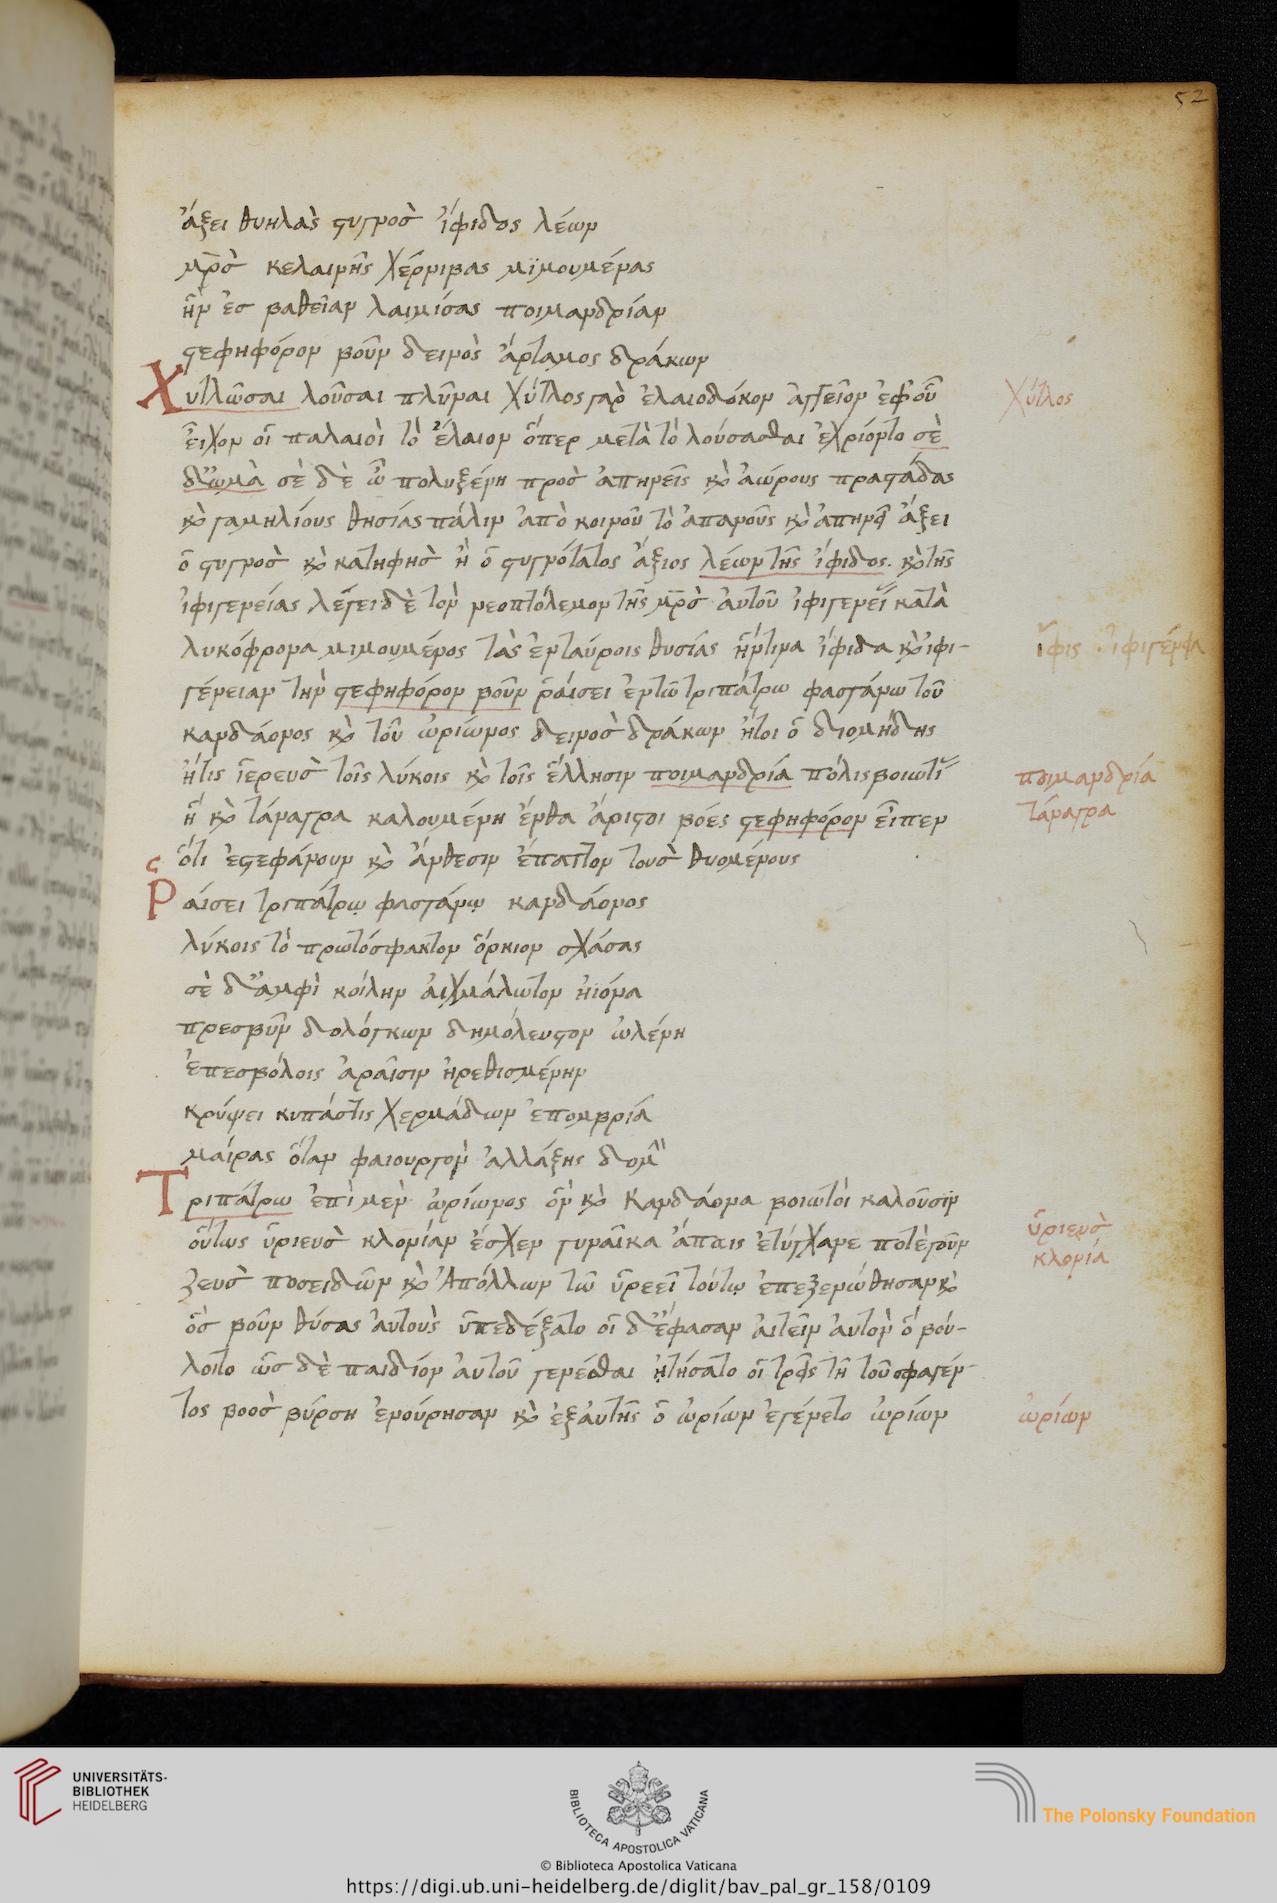 52
ἄξει θυηλὰς στυγνὸσ ἴφιδος λέων
μρ̅ὸσ κελαινῆς χέρνιβας μϊμουμένας
ἣν ἐσ βαθεῖαν λαιμίσας ποιμανδρίαν
στεφηφόρον βοῦν δεινὸς ἄρταμος δράκων
Χυτλῶσαι λοῦσαι πλῦναι χύτλος γαρ ἐλαιοδόκον ἀγγεῖον ἐφ' οὗ
χύτλος
εἶχον οἱ παλαιοὶ τὸ ἔλαιον ὅπερ μετὰ τὸ λούσασθαι ἐχρίοντο σὲ
δ' ὠμὰ σὲ δὲ ὦ πολυξένη προσ ἀπηνεῖς κ ἀώρους παστάδας
κ γαμηλίους θησίας πάλιν ἀπὸ κοινοῦ τὸ ἀπανοῦς κ ἀπην ἄξει
ὁ στυγνὸσ κ κατηφὴσ ἢ ὁ στυγνότατος ἄξιος λέων τῆς ἴφιδος. κ τῆς
ἰφιγενείας λέγει δὲ τὸν νεοπτόλεμον τῆς μρ̅ὸσ αὐτοῦ ἰφιγενεί κατὰ
λυκόφρονα μιμουμένος τὰς ἐν ταύροις θυσίας ἥντινα ἴφιδα κ ἰφι-
ἶφις · ἰφιγένεια
γένειαν τὴν στεφηφόρον βοῦν ῥαίσει ἐν τῶ τριπάτρω φασγάνω τοῦ
κανδάονος κ τοῦ ὠρίωνος δεινὸσ δράκων ἤτοι ὁ διομήδης
ἥτις ἱερευσ τοῖς λύκοις κ τοῖς ἕλλησιν ποιμανδρία πόλις βοιωτί
ποιμανδρία
ἡ κ τάναγρα καλουμένη ἔνθα ἄριστοι βοές στεφηφόρον εἶπεν
τάναγρα
ὅτι ἐστεφάνουν κ ἄνθεσιν ἔπαττον τοὺσ θυομένους
Ῥαίσει τριπάτρῳ φασγάνῳ κανδάονος
λύκοις τὸ πρωτόσφακτον ὅρκιον σχάσας
σὲ δ' ἀμφὶ κοίλην αἰχμάλωτον ἠϊόνα
πρεσβῦν δολόγκων δημόλευστον ὠλένη
ἐπεσβόλοις ἀραῖσιν ἠρεθισμένην
κρύψει κυπάσσις χερμάδων ἐπομβρία
μαίρας ὅταν φαιουργὸν ἀλλάξης δομ
Τριπάτρω ἐπὶ μὲν ὠρίωνος ὃν κ Κανδάονα βοιωτοὶ καλοῦσιν
οὕτως ὑριευσ κλονίαν ἔσχεν γυναῖκα ἄπαις ἐτύγχανε ποτὲ γοῦν
ὑριευσ
κλονία
ζευσ ποσειδῶν κ Ἀπόλλων τῶ ὑρεεῖ τούτῳ ἐπεξενώθησαν κ
ὃσ βοῦν θύσας αὐτοὺς ὑπεδέξατο οἱ δ' ἔφασαν αἰτεῖν αὐτὸν ὃ βού-
λοιτο ὡσ δὲ παιδίον αὐτοῦ γενέσθαι ᾐτήσατο οἱ τρς τῆ τοῦ σφαγέν-
τος βοοσ βύρση ἐνούρησαν κ ἐξαυτῆς ὁ ὠρίων ἐγένετο ὠρίων
ὠρίων
UNIVERSITÄTS-
BIBLIOTHEK
HEIDELBERG
BIBLIOTECA APOSTOLICA VATICANA
The Polonsky Foundation
© Biblioteca Apostolica Vaticana
https://digi.ub.uni-heidelberg.de/diglit/bav_pal_gr_158/0109